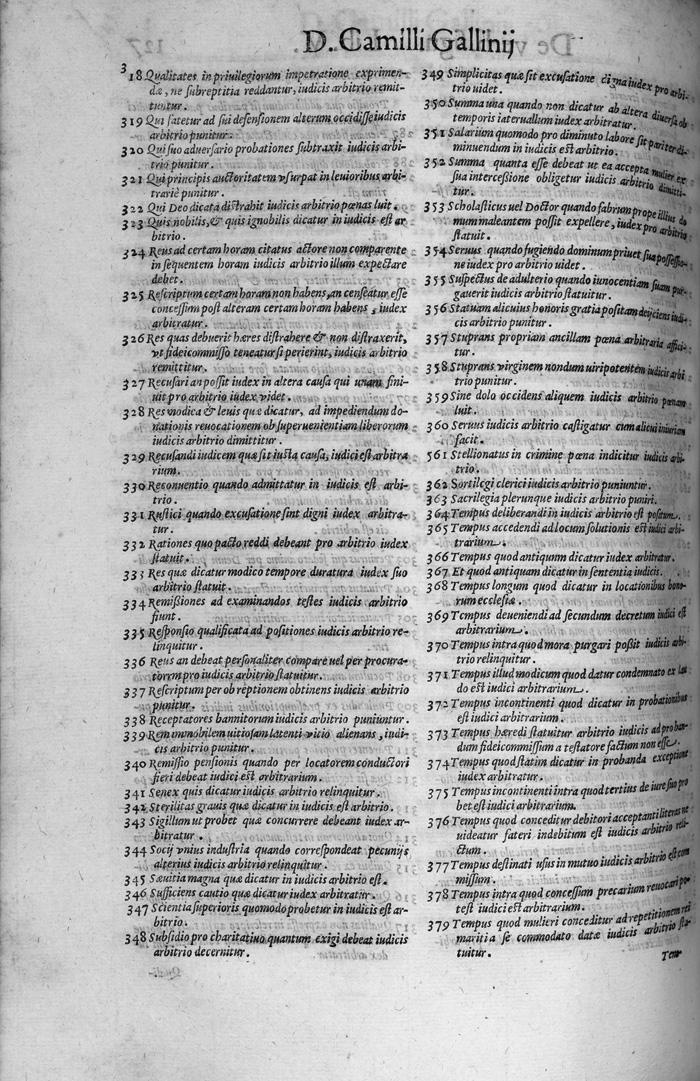 D. Camilli Gallinij
318 Qualitates in priuilegiorum impetratione exprimen-
dæ, ne subreptitia reddantur, iudicis arbitrio remit-
tuntur.
319 Qui fatetur ad sui defensionem alterum occidisse iudicis
arbitrio punitur.
320 Qui suo aduersario probationes subtraxit iudicis arbi-
trio punitur.
321 Qui principis auctoritatem vsurpat in leuioribus arbi-
trariè punitur.
322 Qui Deo dicata distrahit iudicis arbitrio pœnas luit.
323 Quis nobilis, & quis ignobilis dicatur in iudicis est ar
bitrio.
324 Reus ad certam horam citatus actore non comparente
in sequentem horam iudicis arbitrio illum expectare
debet.
325 Rescriptum certam horam non habens, an censeatur esse
concessum post alteram certam horam habens, iudex
arbitratur.
326 Res quas debuerit hæres distrahere & non distraxerit,
vt fideicommisso teneatur si perierint, iudicis arbitrio
remittitur.
327 Recusari an possit iudex in altera causa qui unam fini-
uit pro arbitrio iudex videt.
328 Res modica & leuis quæ dicatur, ad impediendum do-
nationis reuocationem ob superuenientiam liberorum
iudicis arbitrio dimittitur.
329 Recusandi iudicem quæ sit iusta causa, iudici est arbitra
rium.
330 Reconuentio quando admittatur in iudicis est arbi-
trio.
331 Rustici quando excusatione sint digni iudex arbitra-
tur.
332 Rationes quo pacto reddi debeant pro arbitrio iudex
statuit.
333 Res quæ dicatur modico tempore duratura iudex suo
arbitrio statuit.
334 Remissiones ad examinandos testes iudicis arbitrio
fiunt.
335 Responsio qualificata ad positiones iudicis arbitrio re-
linquitur.
336 Reus an debeat personaliter compare uel per procura-
torem pro iudicis arbitrio statuitur.
337 Rescriptum per obreptionem obtinens iudicis arbitrio
punitur.
338 Receptatores bannitorum iudicis arbitrio puniuntur.
339 Rem immobilem uitiosam latenti vicio alienans, iudi-
cis arbitrio punitur.
340 Remissio pensionis quando per locatorem conductori
fieri debeat iudici est arbitrarium.
341 Senex quis dicatur iudicis arbitrio relinquitur.
342 Sterilitas grauis quæ dicatur in iudicis est arbitrio.
343 Sigillum ut probet quæ concurrere debeant iudex ar-
bitratur.
344 Socij vnius industria quando correspondeat pecunijs
alterius iudicis arbitrio relinquitur.
345 Sæuitia magna quæ dicatur in iudicis est arbitrio est.
346 Sufficiens cautio quæ dicatur iudex arbitratur.
347 Scientia superioris quomodo probetur in iudicis est ar-
bitrio.
348 Subsidio pro charitatiuo quantum exigi debeat iudicis
arbitrio decernitur.
349 Simplicitas quæ sit excusatione digna iudex pro arbi-
trio uidet.
350 Summa una quando non dicatur ab altera diuersa ob
temporis interuallum iudex arbitratur.
351 Salarium quomodo pro diminuto labore sit pariter di-
minuendum in iudicis est arbitrio.
352 Summa quanta esse debeat ut ea accepta mulier ex
sua intercessione obligetur iudicis arbitrio dimitti-
tur.
353 Scholasticus uel Doctor quando fabrum prope illius do
mum maleantem possit expellere, iudex pro arbitrio
statuit.
354 Seruus quando fugiendo dominum priuet sua possessio-
ne iudex pro arbitrio uidet.
355 Suspectus de adulterio quando innocentiam suam pur-
gauerit iudicis arbitrio statuitur.
356 Statuam alicuius honoris gratia positam deijciens iudi-
cis arbitrio punitur.
357 Stuprans propriam ancillam pœna arbitraria affici-
tur.
358 Stuprans virginem nondum uiri potentem iudicis arbi
trio punitur.
359 Sine dolo occidens aliquem iudicis arbitrio pœnam
luit.
360 Seruus iudicis arbitrio castigatur cum alicui iniuriam
facit.
561 Stellionatus in crimine pœna indicitur iudicis arbi-
trio.
362 Sortilegi clerici iudicis arbitrio puniuntur.
363 Sacrilegia plerunque iudicis arbitrio puniri.
364 Tempus deliberandi in iudicis arbitrio est positum.
365 Tempus accedendi ad locum solutionis est iudici arbi-
trarium.
366 Tempus quod antiquum dicatur iudex arbitratur.
367 Et quod antiquam dicatur in sententia iudicis.
368 Tempus longum quod dicatur in locationibus bono-
rum ecclesiæ.
369 Tempus deueniendi ad secundum decretum iudici est
arbitrarium.
370 Tempus intra quod mora purgari possit iudicis arbi-
trio relinquitur.
371 Tempus illud modicum quod datur condemnato ex lau
do est iudici arbitrarium.
372 Tempus incontinenti quod dicatur in probationibus
est iudici arbitrarium.
373 Tempus hæredi statuitur arbitrio iudicis ad proban-
dum fideicommissum a testatore factum non esse.
374 Tempus quod statim dicatur in probanda exceptione
iudex arbitratur.
375 Tempus incontinenti intra quod tertius de iure suo pro
bet est iudici arbitrarium.
376 Tempus quod conceditur debitori acceptanti literas ne
uideatur fateri indebitum est iudicis arbitrio reli-
ctum.
377 Tempus destinati usus in mutuo iudicis arbitrio est com
missum.
378 Tempus intra quod concessum precarium reuocari po-
test iudici est arbitrarium.
379 Tempus quod mulieri conceditur ad repetitionem rei
maritia se commodato datæ iudicis arbitrio sta-
tuitur.
Tem-